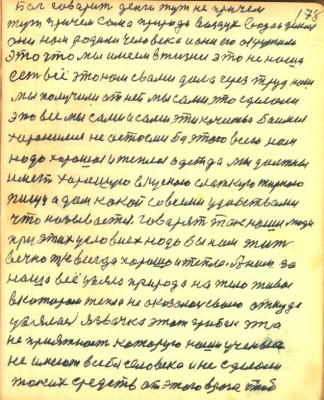 Бог говорит денги тут не причем 178
тут причем сама природа воздух вода земля
они нам родили человека и они его окружили
это что мы имеем в жизни это не наша
есть всё это нам свами дала через труд нам
мы получили от неё мы сами это сделали
это все мы сами и сами эти качества
хоронился не остосми бы этого всего нам
надо хороша и тепла одежда мы должны
иметь хорошую вкусною сладкую жирною
пищу а дом какой со всеми удобствами
что називается. говорят так наши люди
при этих условиех надо бы нам жить
вечно т же всегда хорошо и тепло. А нам за
наша всё ввяла природа на тело живое
в котором тепла не оказолось само откуда
взялая язвачка этот грибок эта
не приятност которую наши ученые
не имеют в себе человека и не сделали
таких средств от этого врага чтоб